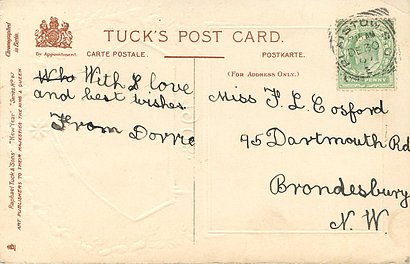 TUCK'S POST CARD.
By Appointment.
CARTE POSTALE.
POSTKARTE.
(FOR ADDRESS ONLY.)
Chromographed in Berlin.
Raphael Tuck & Sons' "New Year" Series
ART PUBLISHERS TO THEIR MAJESTIES THE KING & QUEEN
Who With L love
and best wishes
From Dorrie
Miss F. Cosford
95 Dartmouth Rd
Brondesbury
N. W.